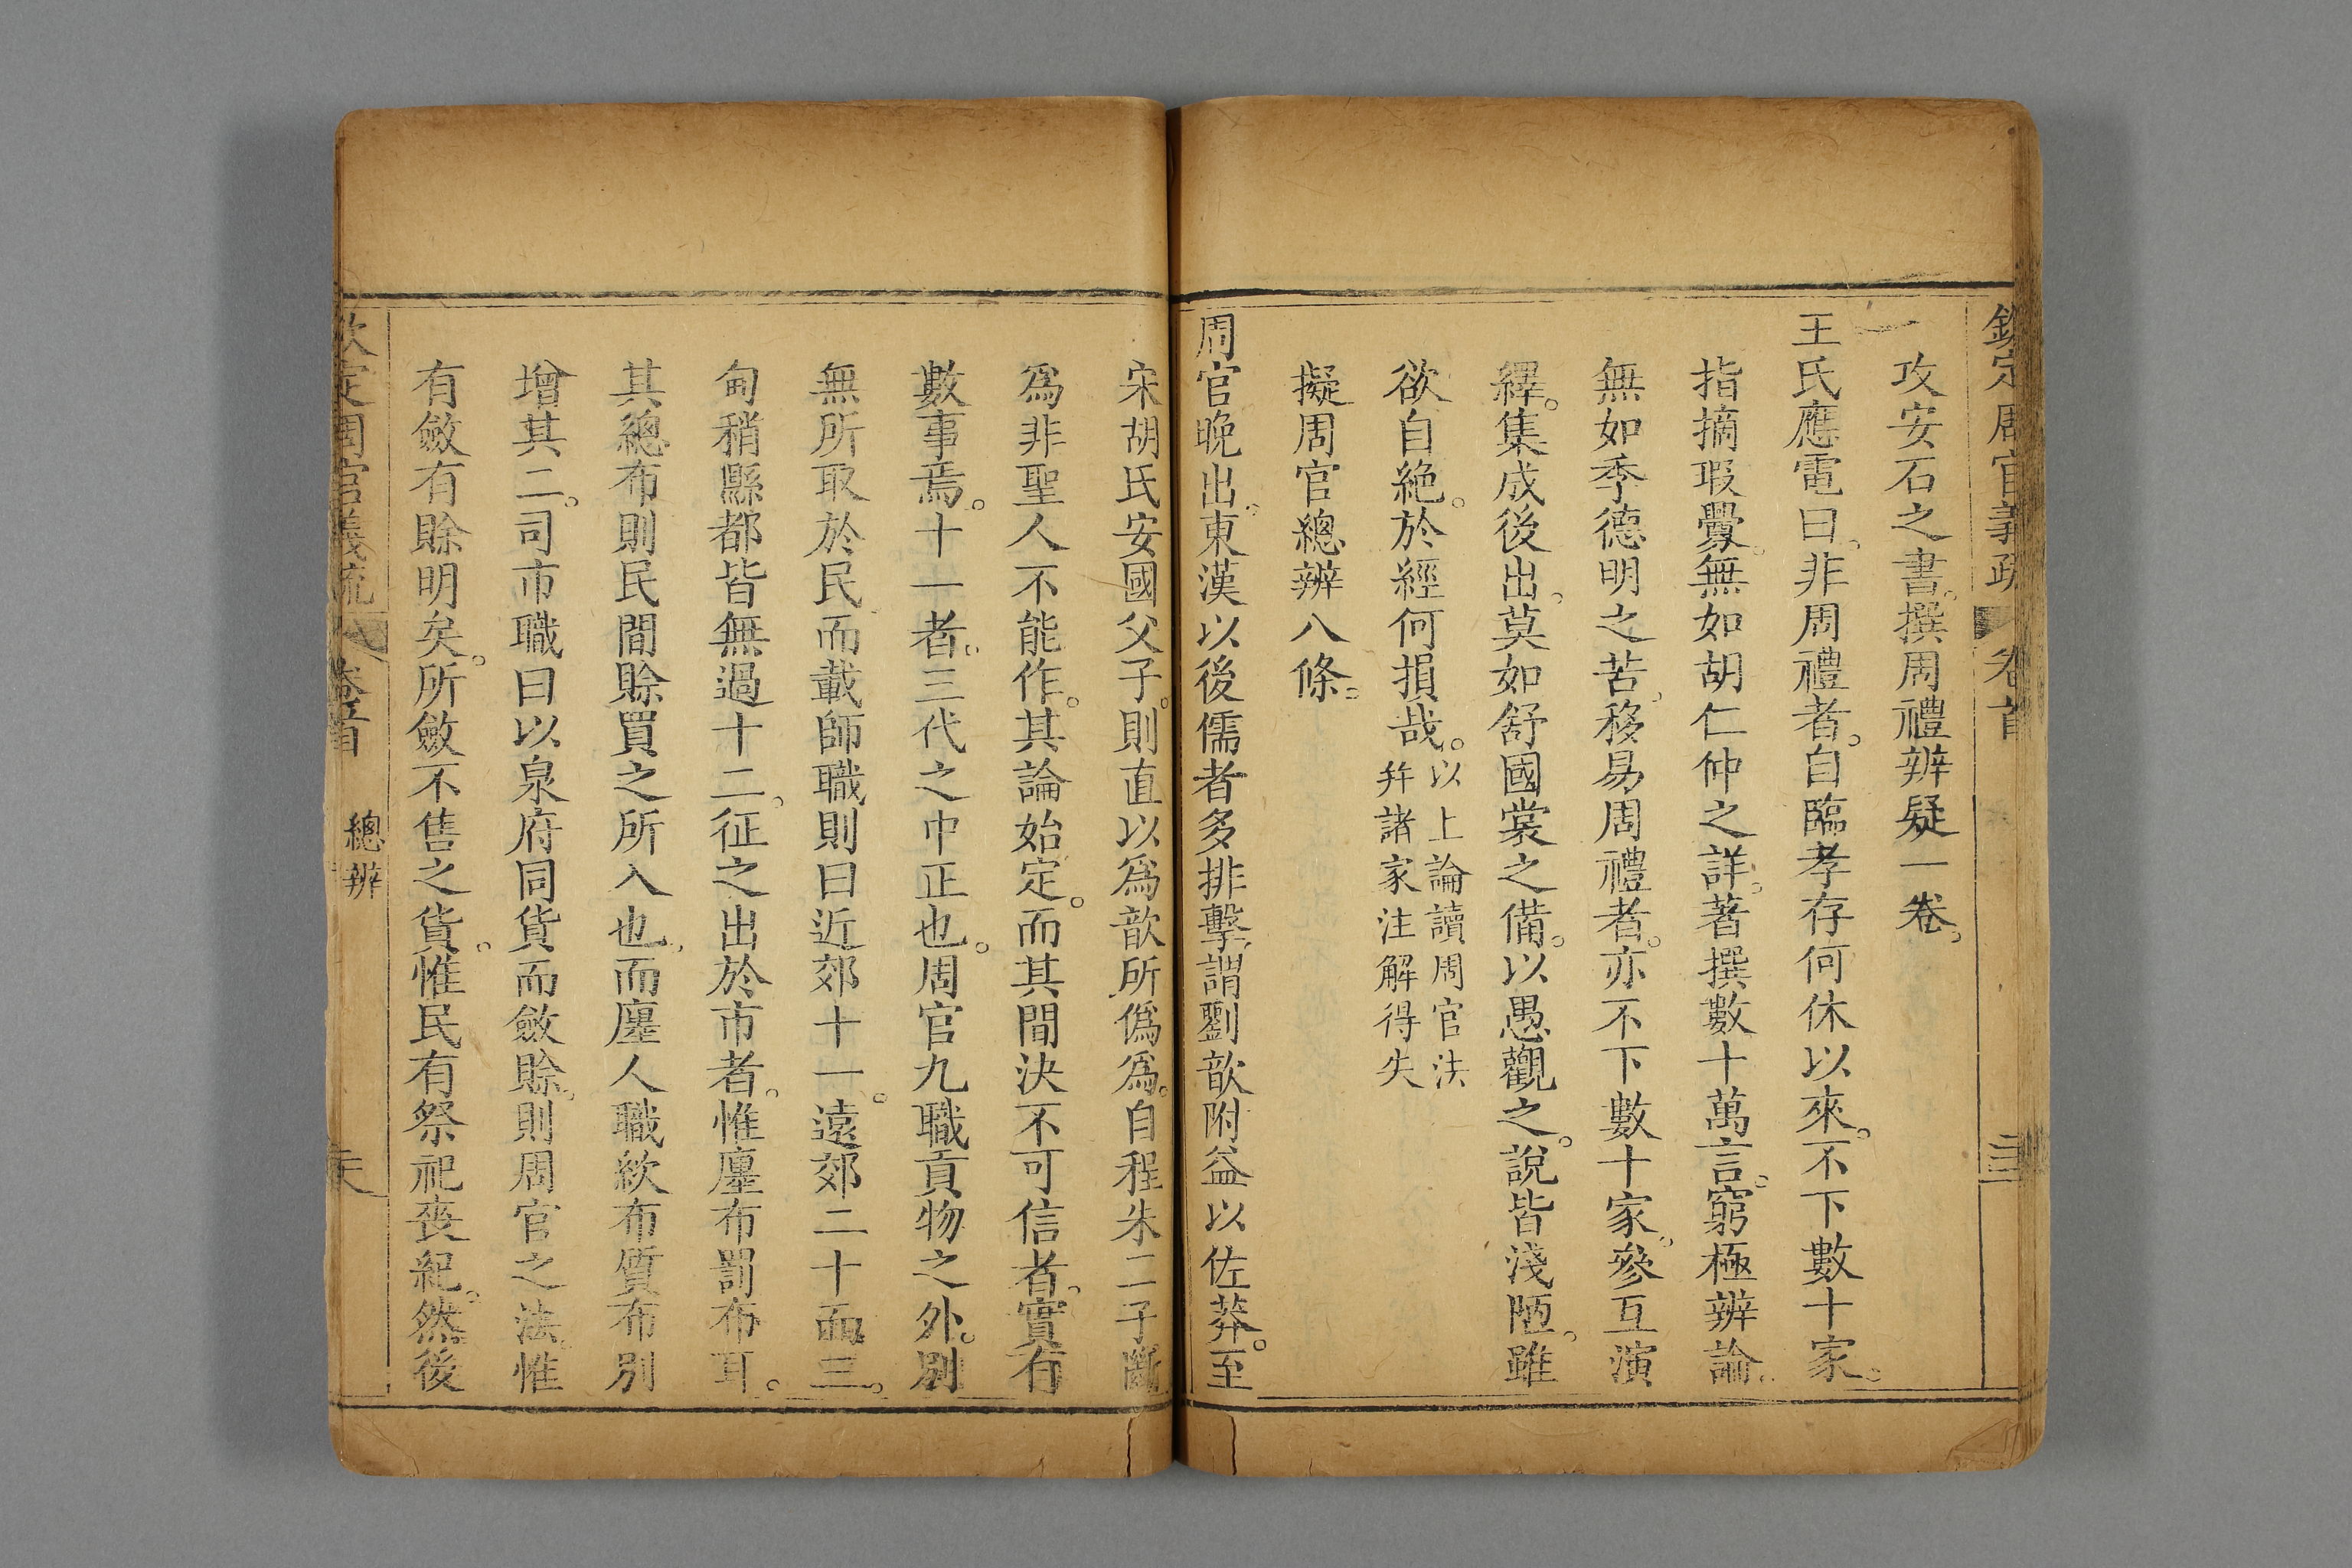 欽定周官義疏 卷首
攻安石之書。撰周禮辨疑一卷。
王氏應電曰。非周禮者。自臨孝存何休以來。不下數十家。
指摘瑕釁。無如胡仁仲之詳。著撰數十萬言。窮極辨論。
無如季德明之苦。移易周禮者。亦不下數十家。參互演
繹。集成後出。莫如舒國裳之備。以愚觀之。說皆淺陋。雖
欲自絶。於經何損哉。以上論讀周官法
幷諸家注解得失
擬周官總辨八條。
周官晚出。東漢以後儒者多排擊。謂劉歆附益以佐莽。至
宋胡氏安國父子。則直以爲歆所僞爲。自程朱二子斷
爲非聖人不能作。其論始定。而其間決不可信者。實有
數事焉。十一者。三代之中正也。周官九職貢物之外。別
無所取於民。而載師職則曰近郊十一。遠郊二十而三。
甸稍縣都皆無過十二。征之出於市者。惟廛布罰布耳。
其總布則民間賒買之所入也。而廛人職絘布質布別
增其二。司市職曰以泉府同貨而斂賒。則周官之法。惟
有斂有賒明矣。所斂不售之貨。惟民有祭祀喪紀。然後
欽定周官義疏 卷首 總辨